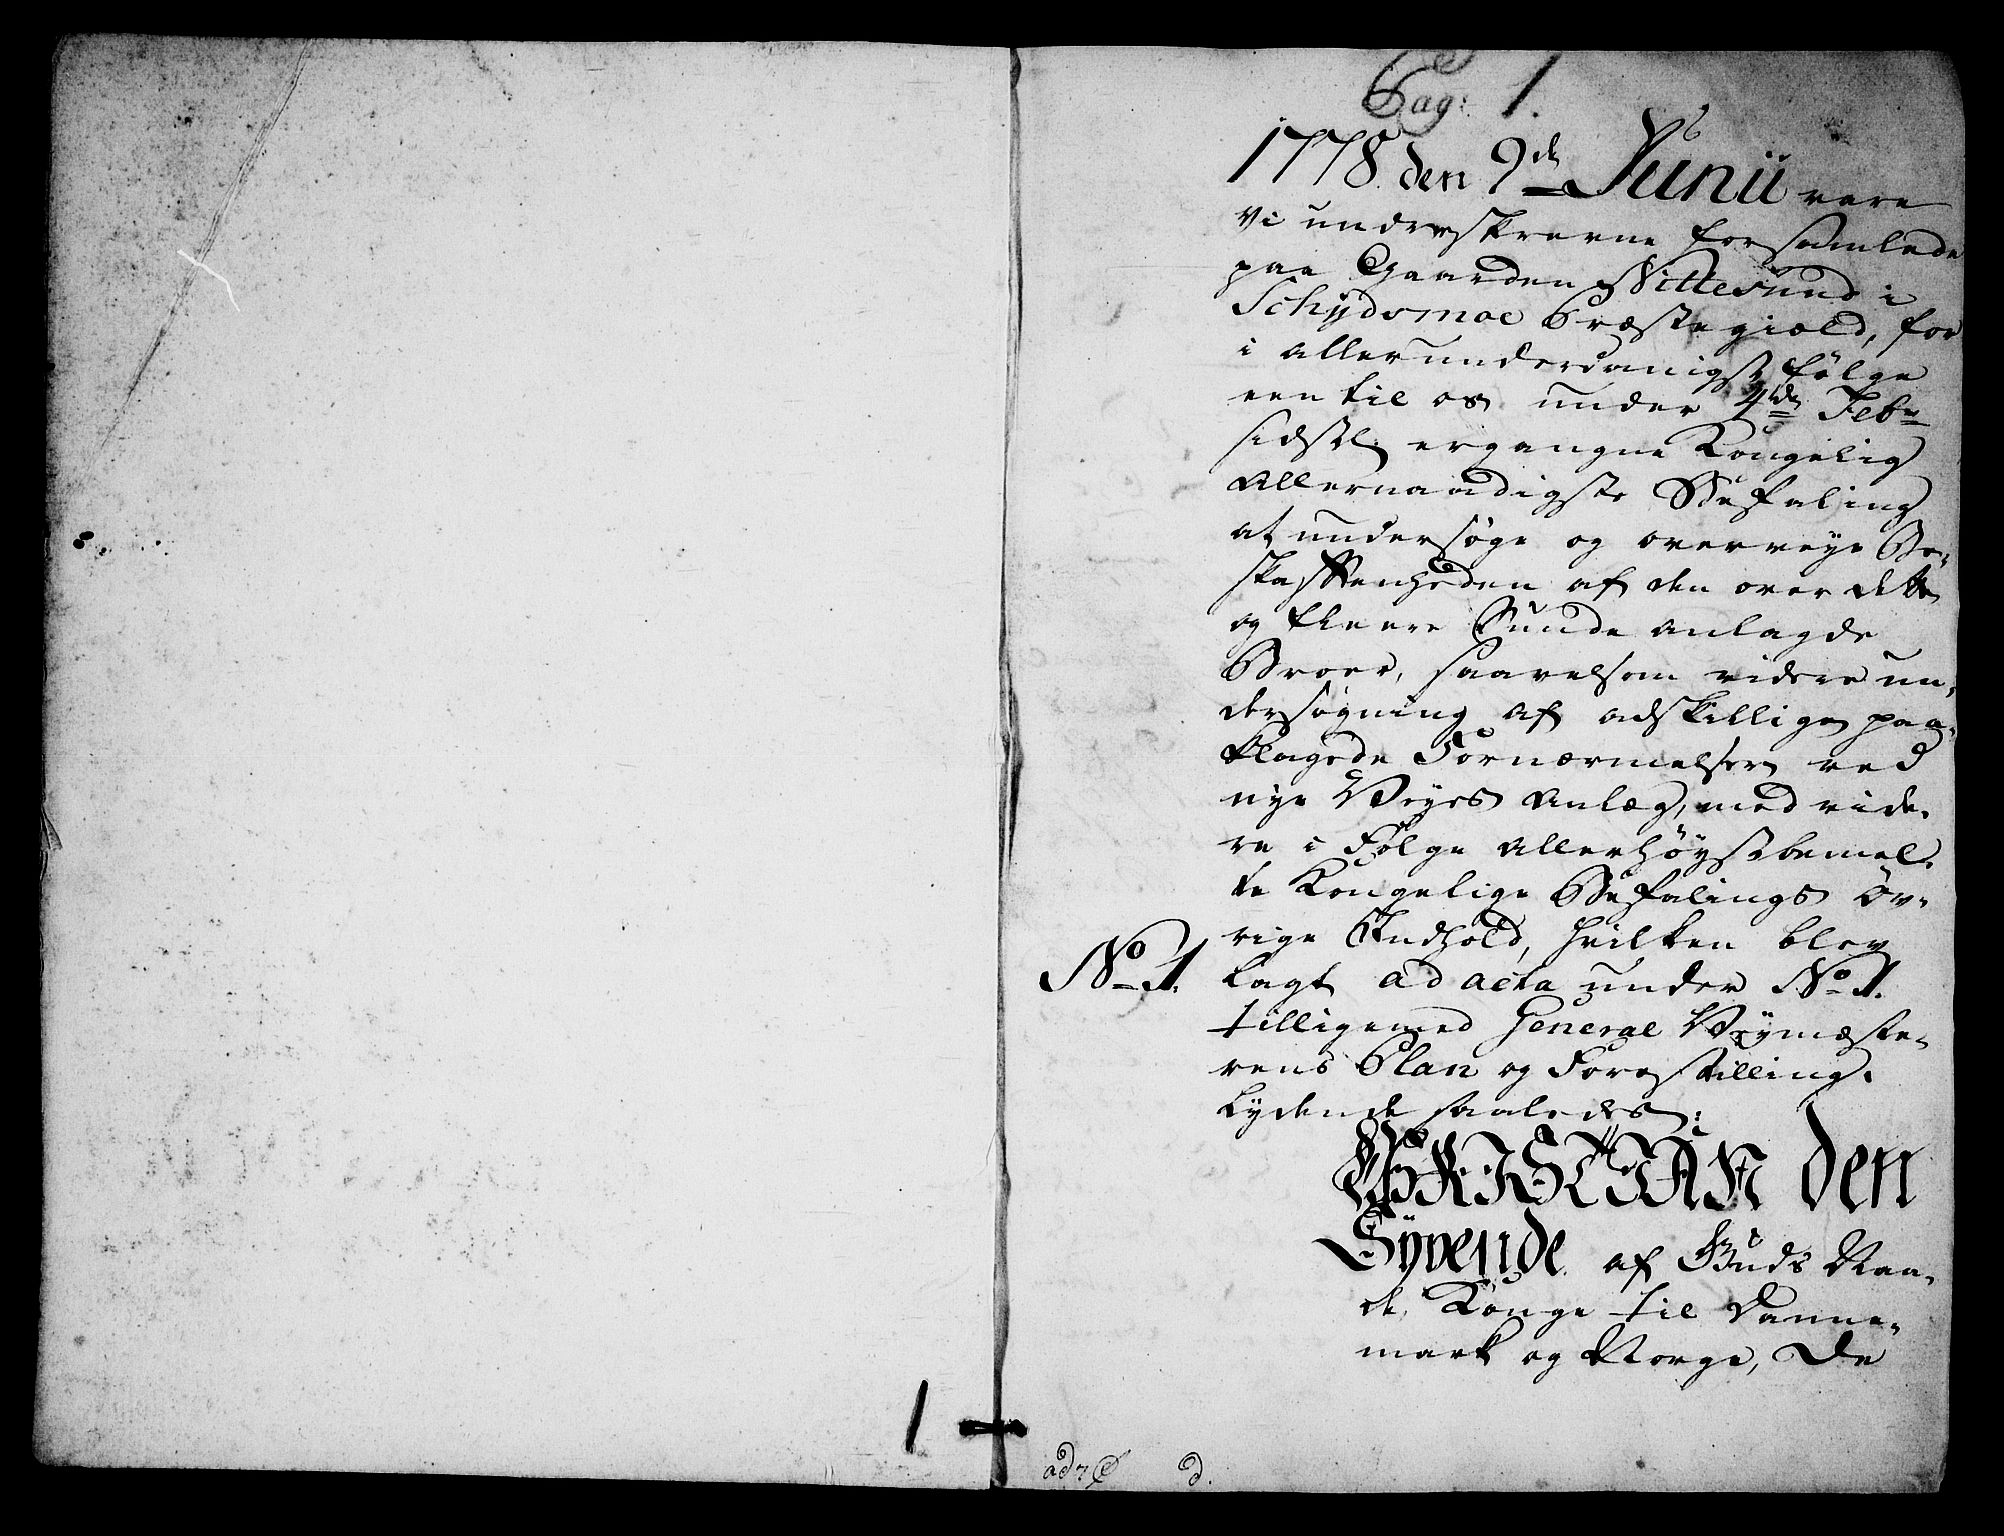 Pag: 1.
1778. den 9de Junii vare
vi underskrevne forsamlede
paa Gaarden Nittesund i
Schydsmoe Præstegiæld, for
i allerunderdanigst følge
een til os under 4de Febr
sidstl. ergangne Kongelig
Allernaadigste Befaling
at undersøge og overveye Be-
skaffenheden af den over dette
og fleere Sunde anlagde
Broer, saavelsom videre un-
dersøgning af adskillige paa-
klagede Fornærmelser ved
nye Veyes Anlæg, med vide-
re i Følge Allerhøystbemel-
te Kongelige Befalings øv-
rige Indhold, hvilken blev
No 1.
lagt ad acta under No 1.
tilligemed General Veymæste-
rens Plan og Forestilling.
lydende saaledes:
CHRISTIAN den
Syvende af Guds Naa-
de, Konge til Danne-
mark og Norge, De
1